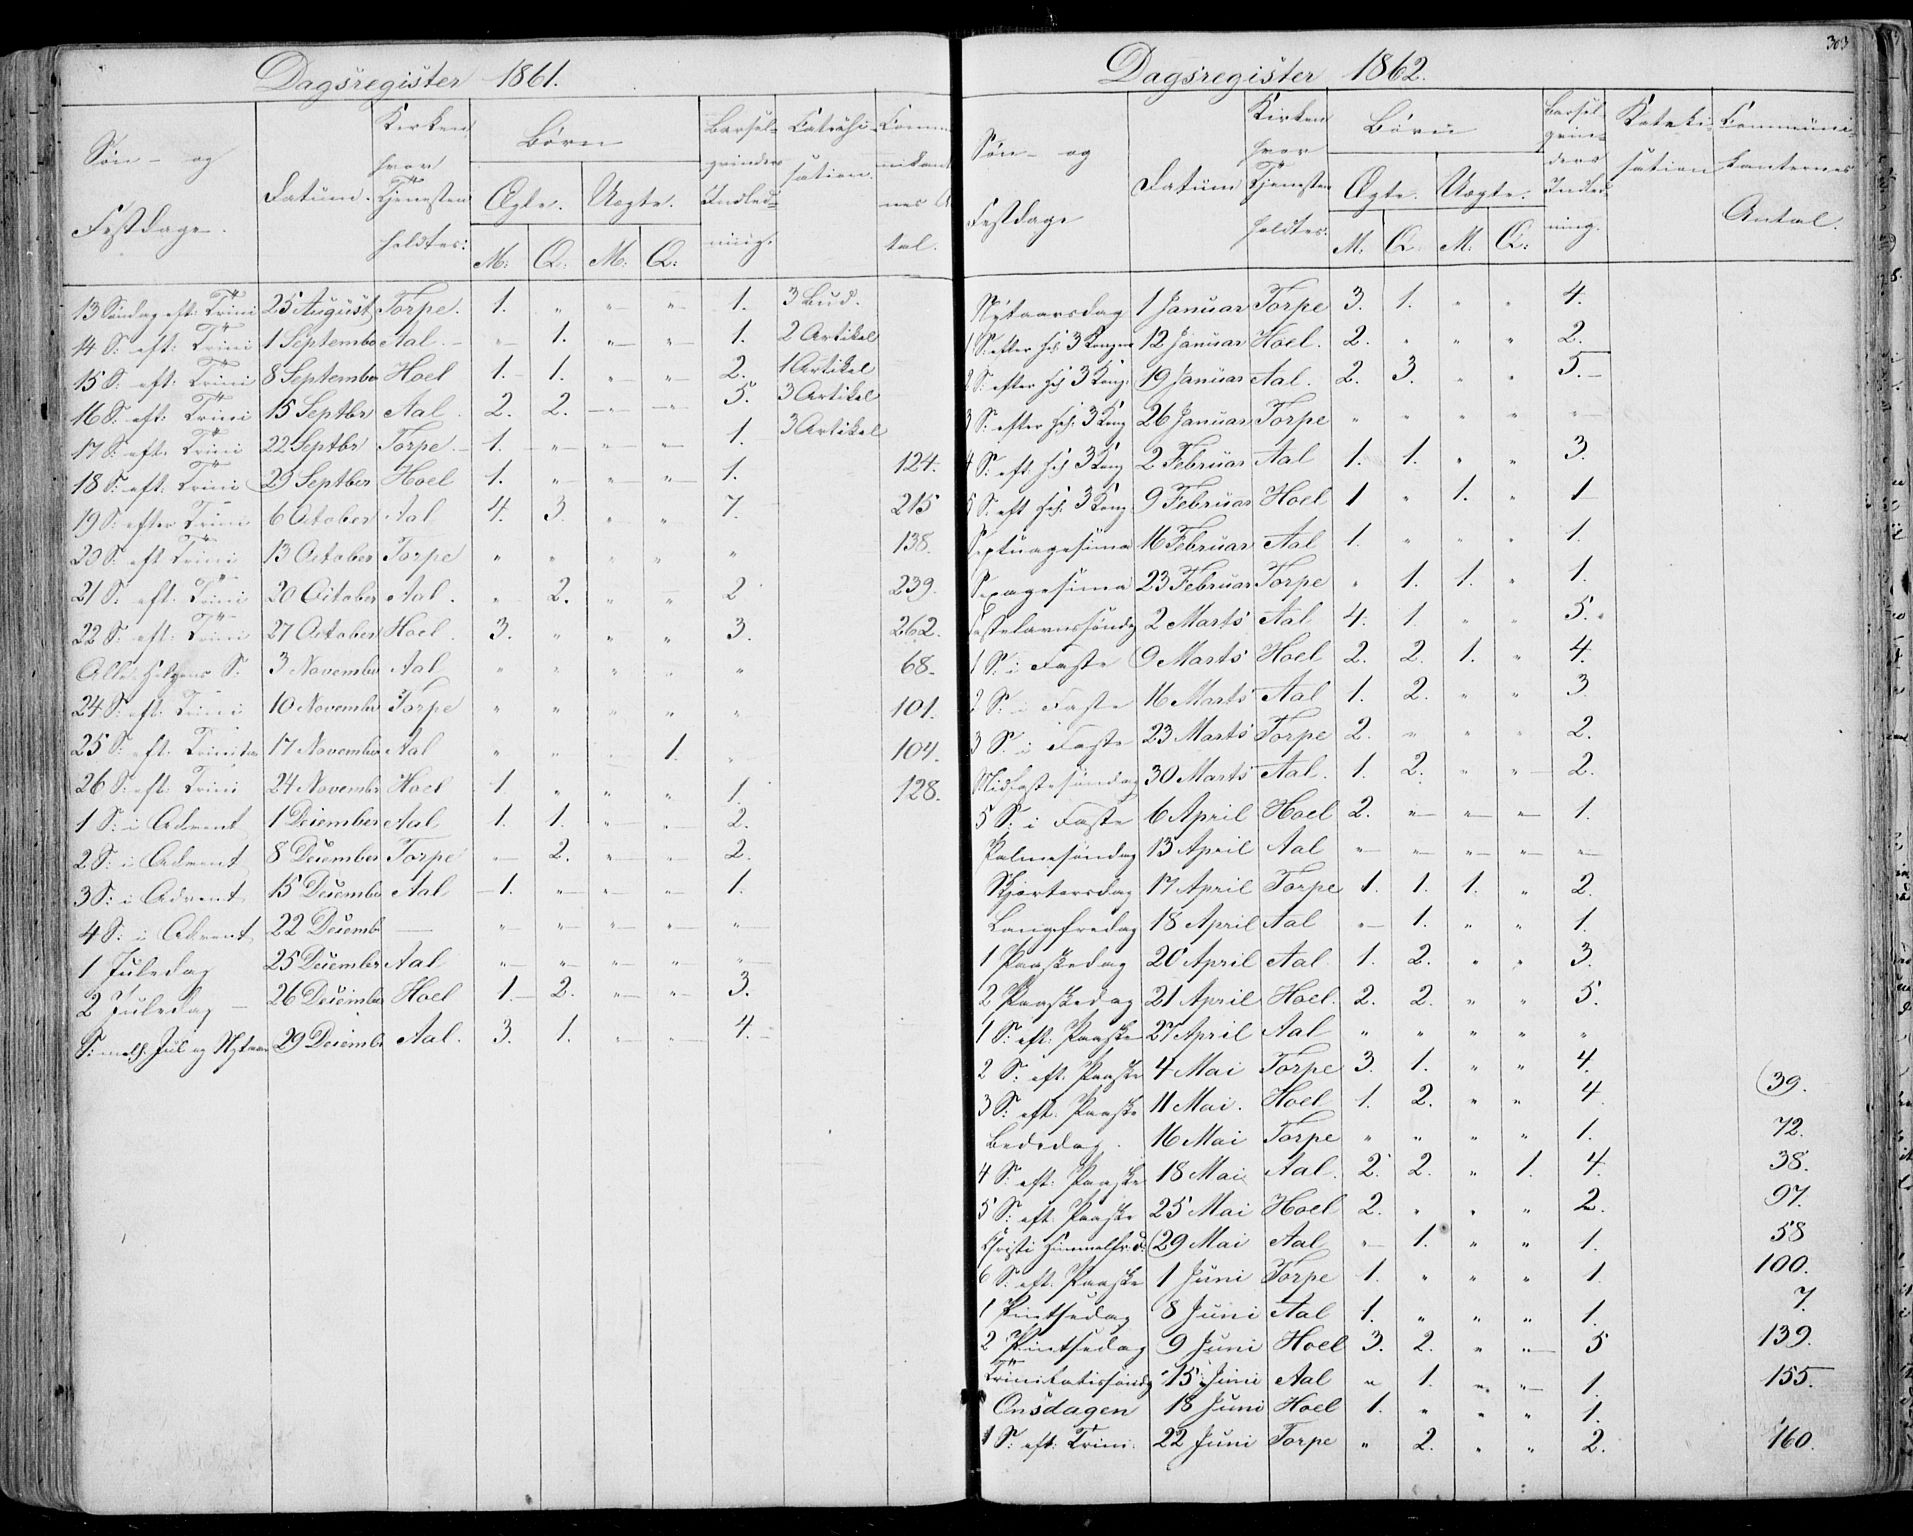 Dagsregister 1861.
Søn- og Festdage. | Datum. | Kirken hvor Tjenesten holdtes: | Børn | Barsel-qvinders Indled-ning. | Catechi-sation. | Commu-nikanter-nes An-tal.
Ægte. | Uægte.
M: | Q: | M: | Q:
13 Søndag eft: Trini | 25 August | Torpe. | 1. | " | " | " | 1. | 3 Bud.
14 S: eft: Trini | 1 Septembe | Aal | " | 1. | " | " | 1. | 2 Artikel
15 S: eft: Trini | 8 Septembe | Hoel | 1. | 1. | " | " | 2. | 1 Artikel
16 S: eft: Trini | 15 Septbr | Aal | 2. | 2. | " | " | 5. | 3 Artikel
17 S: eft: Trini | 22 Septbr | Torpe | 1. | " | " | " | 1. | 3 Artikel
18 S: eft: Trini | 29 Septber | Hoel | 1. | " | " | " | 1. | 124.
19 S: efter Trini | 6 October | Aal | 4. | 3. | " | " | 7. | 215
20 S: eft Trini | 13 October | Torpe | " | " | " | " | " | 138.
21 S: eft. Trini | 20 October | Aal. | " | 2. | " | " | 2 | 239.
22 S: eft: Trini | 27 October | Hoel. | 3. | " | " | " | 3. | 262.
Alle Helgens S: | 3 November | Aal | " | " | " | " | " | 68.
24 S: eft. Trini | 10 Novembr | Torpe | " | " | " | " | " | 101.
25 S: eft. Trinita | 17 November | Aal | " | " | " | 1. | " | 104.
26 S: eft: Trini | 24 Novembr | Hoel | 1. | " | " | " | 1. | 128.
1 S: i Advent | 1 December | Aal | 1. | 1. | " | " | 2.
2 S: i Advent | 8 December | Torpe | " | 2. | " | " | 2.
3 S: i Advent | 15 Decembe | Aal | 1. | " | " | " | 1.
4 S: i Advent | 22 Decemb | — | " | " | " | " | "
1 Juledag | 25 Decembr | Aal | " | " | " | " | "
2 Juledag | 26 December | Hoel | 1. | 2. | " | " | 3.
S: mell: Jul og Nytaar | 29 Decembr | Aal. | 3. | 1. | " | " | 4.
303
Dagsregister 1862.
Søn- og Festdage | Datum | Kirken hvor Tjenesten holdtes: | Børn | Barsel-qvin-ders Indled-ning. | Kateki-sation | Communi-kanternes Antal.
Ægte. | Uægte.
M. | Q. | M: | Q:
Nytaarsdag | 1 Januar | Torpe | 3. | 1. | " | " | 4.
1 S: efter hel: 3 Konger | 12 Januar | Hoel. | 2. | " | " | " | 2.
2 S: efter hel 3 Kong: | 19 Januar | Aal. | 2. | 3. | " | " | 5.
3 S: efter hel: 3 Kong | 26 Januar | Torpe | " | " | " | " | "
4 S: eft. hel 3 Kong | 2 Februar | Aal | 1. | 1. | " | " | 3.
5 S: eft hel: 3 Kong | 9 Februar | Hoel | 1 | " | 1. | " | 1
Septuagesima | 16 Februar | Aal | 1. | " | " | " | 1.
Sexagesima | 23 Februar | Torpe | " | 1. | 1. | " | 1.
Fastelavnssøndg | 2 Marts | Aal | 4. | 1. | " | " | 5.
1 S: i Faste | 9 Marts | Hoel | 2. | 2. | 1. | " | 4.
2 S: i Faste | 16 Marts | Aal | 1. | 2. | " | " | 3.
3 S: i Faste | 23 Marts | Torpe | 2. | " | " | " | 2.
Midfastesøndag | 30 Marts | Aal. | 1. | 2. | " | " | 2.
5 S: i Faste | 6 April | Hoel | 2. | " | " | " | 1.
Palmesøndag | 13 April | Aal | " | " | " | " | "
Skjærtorsdag | 17 April | Torpe | 1. | 1. | 1. | " | 2.
Langfredag | 18 April | Aal | " | 1. | " | " | 1.
1 Paaskedag | 20 April | Aal | 1. | 2. | " | " | 3.
2 Paaskedag | 21 April | Hoel. | 2. | 2. | " | " | 5.
1 S: eft. Paaske | 27 April | Aal | " | " | " | " | "
2 S: eft. Paaske | 4 Mai | Torpe | 3. | 1. | " | " | 4. | 39.
3 S: eft. Paaske | 11 Mai. | Hoel | 1. | 2. | " | " | 4. | 72.
Bededag. | 16 Mai | Torpe | " | " | " | " | 1. | 38.
4 S: eft: Paaske | 18 Mai | Aal. | 2. | 2. | " | 1. | 4. | 97.
5 S: eft. Paaske | 25 Mai | Hoel | 2. | " | " | " | 2. | 58
Christi Himmelfrd: | 29 Mai | Aal | " | 1. | " | " | 1. | 100.
6 S: eft. Paaske | 1 Juni | Torpe | 1. | " | " | " | 1. | 7.
1 Pintsedag | 8 Juni | Aal | 1. | " | " | " | 1.
2 Pintsedag | 9 Juni | Hoel | 3. | 2. | " | " | 5 | 139.
Trinitatissøndg | 15 Juni | Aal | " | 1. | " | " | 1. | 155.
Onsdagen | 18 Juni | Hoel | 1. | " | " | " | 1.
1 S: eft: Trini. | 22 Juni | Torpe | " | 2. | " | " | 2. | 160.